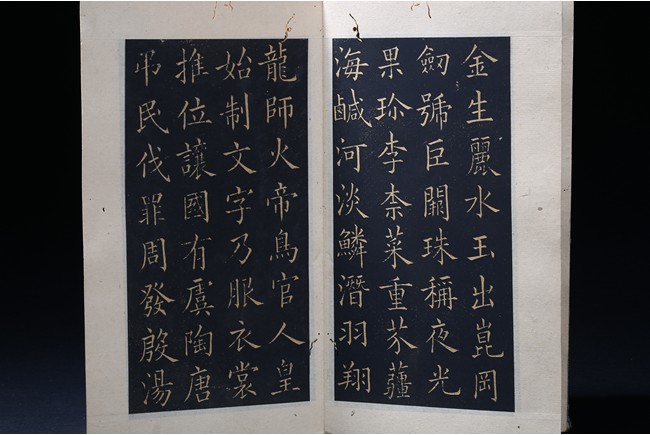 金生麗水玉出崑岡
劒號巨闕珠稱夜光
果珎李柰菜重芥薑
海鹹河淡鱗潛羽翔
龍師火帝鳥官人皇
始制文字乃服衣裳
推位讓國有虞陶唐
弔民伐罪周發殷湯